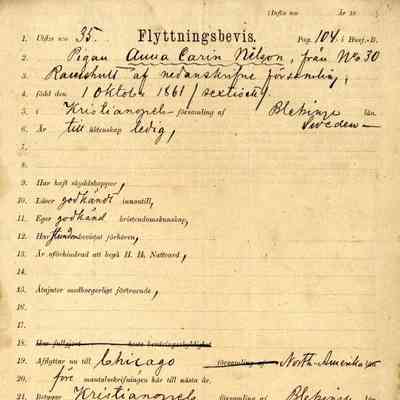 (Införs sub År 18
Flyttningsbevis.
1. Utförs sub 35. Pag. 104 i Husf.-B.
2. Pigan Anna Carin Nilson, från No 30
3. Ramshult af nedanskrifne församling,
4. född den 1 Oktober 1861 / sextioett /
5. i Kristianopels församling af Blekinge län.
6. Är till äktenskap ledig, Sweden
7.
8.
9. Har haft skyddskoppor,
10. Läser godkändt innantill,
11. Eger godkänd kristendomskunskap,
12. Har stundom bevistat förhören,
13. Är oförhindrad att begå H. H. Nattvard,
14.
15. Åtnjuter medborgerligt förtroende,
16.
17.
18. Har fullgjort hela beväringsskyldighet
19. Afflyttar nu till Chicago församling af North-Amerika
20. före mantalsskrifningen här till nästa år.
21. Betygar Kristianopels församling af Blekinge